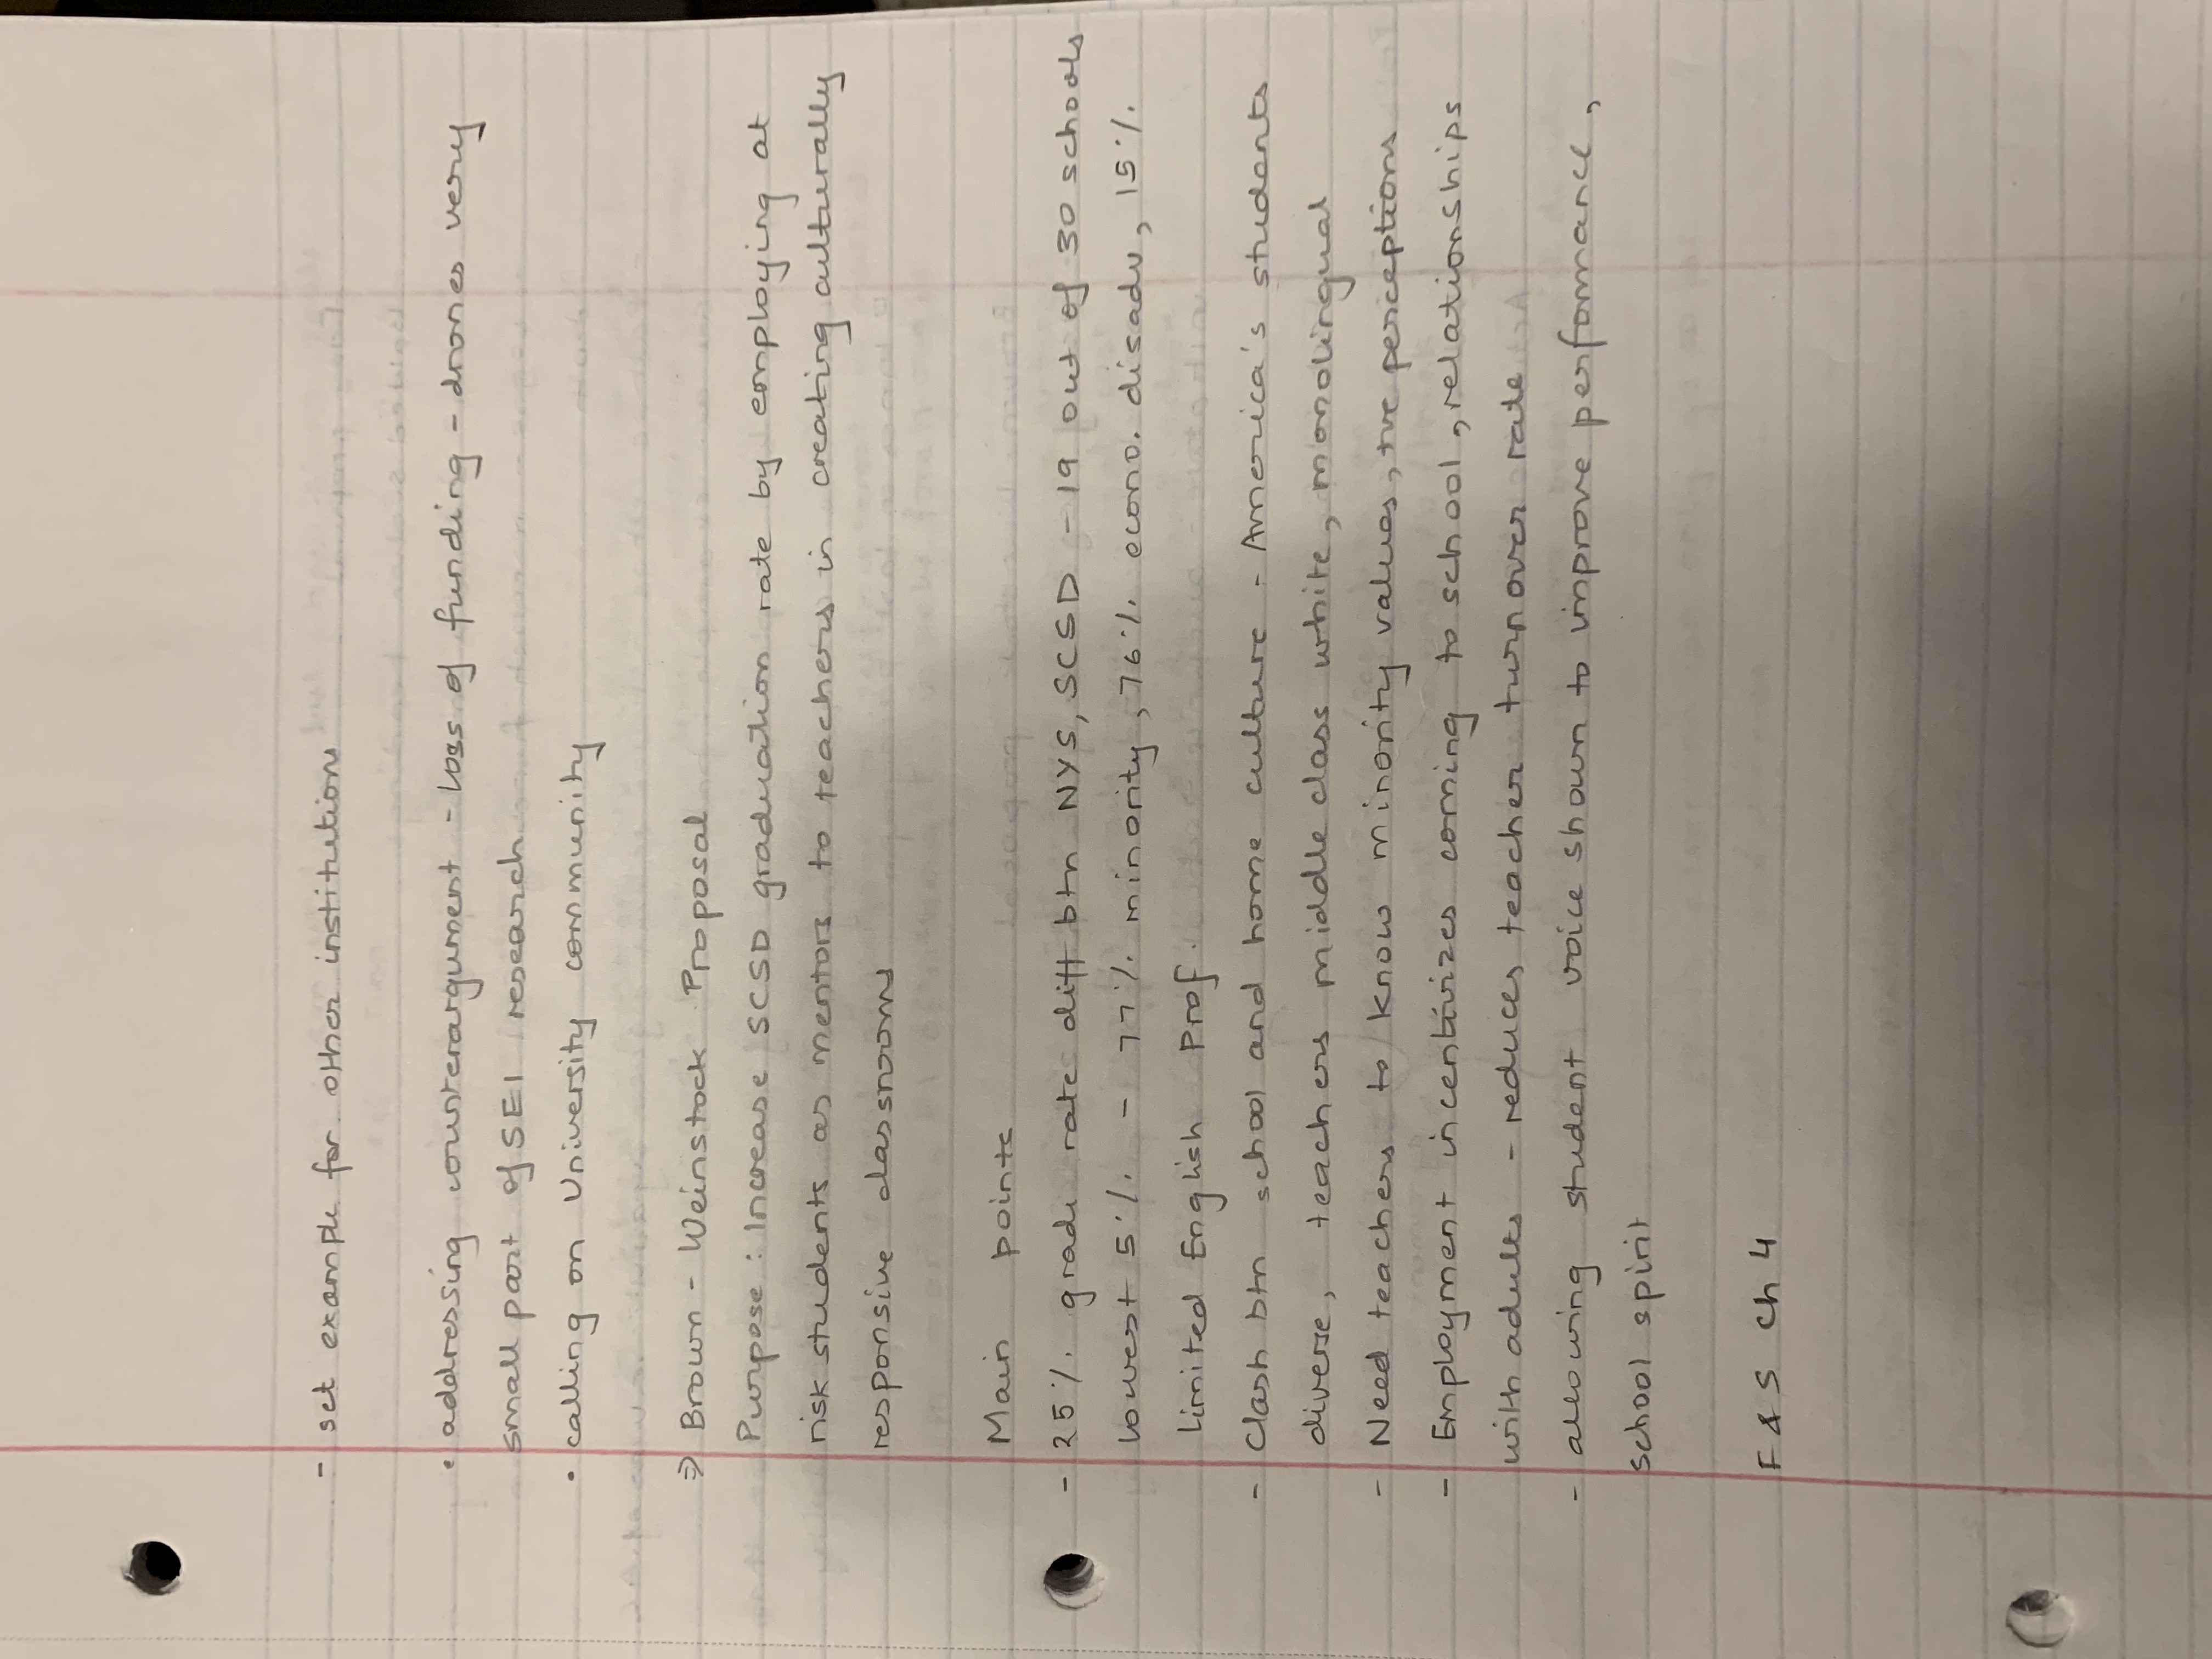 - set example for other institutions
• addressing counterargument - loss of funding - drones very
small part of SEI research
• calling on University community
⇒ Brown - Weinstock Proposal
Purpose : Increase SCSD graduation rate by employing at
risk students as mentors to teachers in creating culturally
responsive classrooms
Main points
- 25%. grade rate diff btn NYS, SCSD - 19 out of 30 schools
lowest 5%. - 77%. minority, 76%. econo. disadv, 15%.
Limited English Prof.
- Clash btn school and home culture - America's students
diverse, teachers middle class white, monolingual
- Need teachers to know minority values, +ve perceptions
- Employment incentivizes coming to school, relationships
with adults - reduces teacher turnover rate
- allowing student voice shown to improve performance,
school spirit
F & S Ch 4